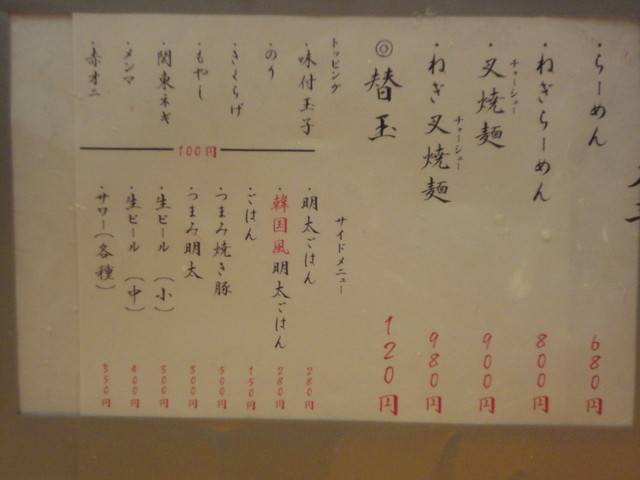 ・らーめん 680円
・ねぎらーめん 800円
チャーシュー
・叉焼麺 900円
チャーシュー
・ねぎ叉焼麺 980円
◎替玉 120円
トッピング
・味付玉子
・のり
・きくらげ
・もやし
・関東ネギ
・メンマ
・赤オニ
100円
サイドメニュー
・明太ごはん 280円
・韓国風明太ごはん 280円
・ごはん 150円
・つまみ焼き豚
・つまみ明太
・生ビール(小) 300円
・生ビール(中) 400円
・サワー(各種) 350円